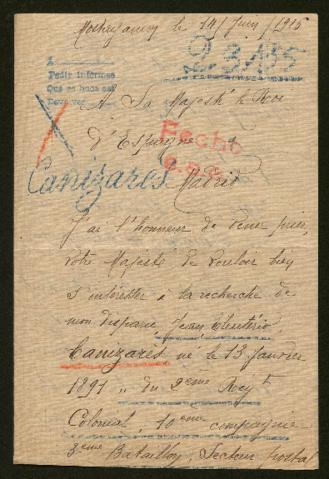 le 14 Juin 1915
2.3.155
Pedir informes
Que se haga así
A Sa Majesté le Roi
d'Espagne
Fecho
Canizares
Madrid
J'ai l'honneur de venir prier
Votre Majesté de vouloir bien
s'intéresser à la recherche de
mon disparu, Jean Eleuterio,
Canizares né le 13 Janvier
1891, du 2ème Reg t
Colonial, 10ème compagnie
3ème Bataillon, Secteur postal